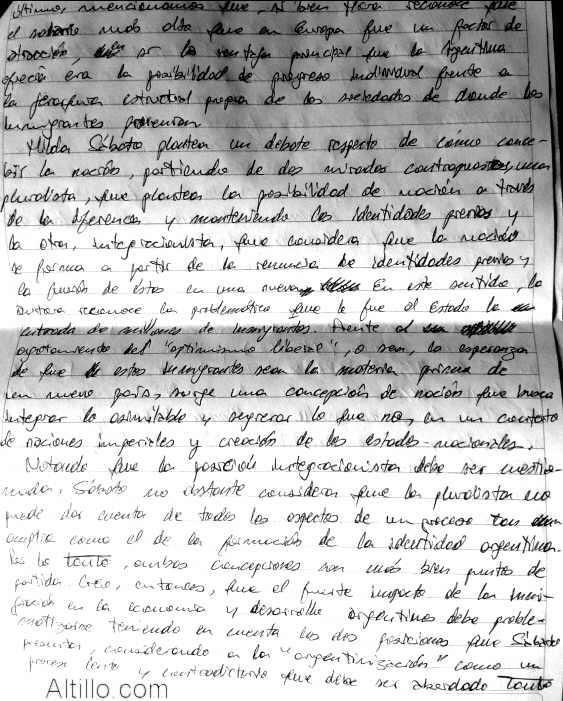 último, mencionamos que, si bien Flora reconoce que
el salario más alto que en Europa fue un factor de
atracción, ser la ventaja principal que la Argentina
ofrecía era la posibilidad de progreso individual frente a
la estructural propia de las sociedades de donde los
inmigrantes provenían
Hilda Sábato plantea un debate respecto de cómo conce-
bir la nación, partiendo de dos miradas contrapuestas, una
pluralista, que plantea la posibilidad de nación a través
de la diferencia y manteniendo las identidades previas y
la otra, integracionista, que considera que la nación
se forma a partir de la renuncia de identidades previas y
la fusión de éstas en una nueva. En este sentido, la
autora reconoce la problemática que le fue al Estado la
entrada de millones de inmigrantes. Frente al
agotamiento del "optimismo liberal", o sea, la esperanza
de que estos inmigrantes sean la materia prima de
un nuevo país, surge una concepción de nación que busca
integrar lo asimilable y segregar lo que no, en un contexto
de naciones imperiales y creación de los estados-nacionales.
Notando que la posición integracionista debe ser cuestio-
nada, Sábato no obstante considera que la pluralista no
puede dar cuenta de todos los aspectos de un proceso tan
amplio como el de la formación de la identidad argentina.
Por lo tanto, ambas concepciones son más bien puntos de
partida. Creo, entonces, que el fuerte impacto de la inmi-
gración en la economía y desarrollo argentino debe proble-
matizarse teniendo en cuenta las dos posiciones que Sábato
presenta, considerando a la "argentinización" como un
proceso lento y contradictorio que debe ser abordado tanto
Altillo.com